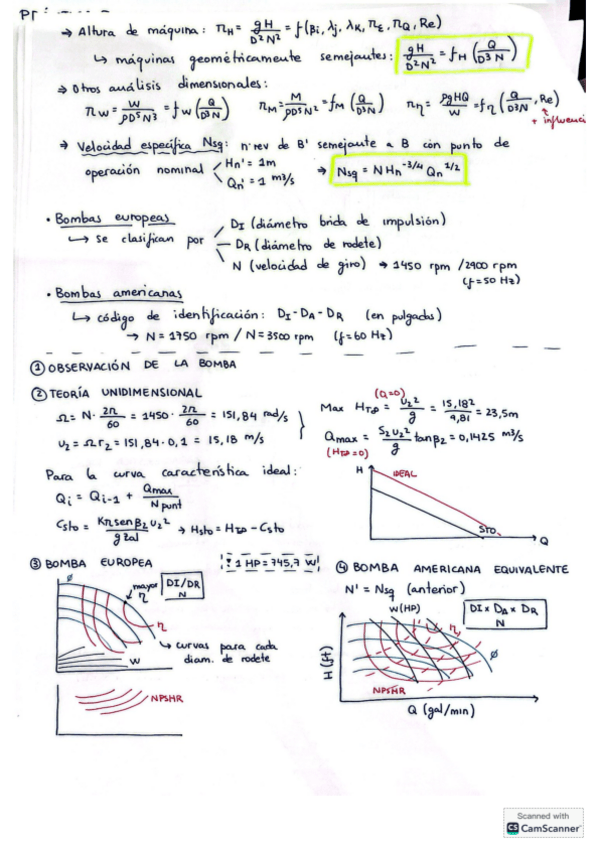 → Altura de máquina: π_H = gH/D²N² = f(βi, λj, λK, π_E, π_Q, Re)
↳ máquinas geométricamente semejantes: gH/D²N² = f_H (Q/D³N)
→ Otros análisis dimensionales:
π_W = W/ρD⁵N³ = f_W (Q/D³N) π_M = M/ρD⁵N² = f_M (Q/D³N) π_η = ρgHQ/W = f_η (Q/D³N, Re)
+ influenci
→ Velocidad específica Nsq: nºrev de B' semejante a B con punto de
operación nominal Hn' = 1m
Qn' = 1 m³/s
→ Nsq = N Hn^-3/4 Qn^1/2
• Bombas europeas
↳ se clasifican por
DI (diámetro brida de impulsión)
DR (diámetro de rodete)
N (velocidad de giro) → 1450 rpm / 2900 rpm
(f=50 Hz)
• Bombas americanas
↳ código de identificación: DI - DA - DR (en pulgadas)
→ N = 1750 rpm / N = 3500 rpm (f=60 Hz)
① OBSERVACIÓN DE LA BOMBA
② TEORÍA UNIDIMENSIONAL
Ω = N · 2π/60 = 1450 · 2π/60 = 151,84 rad/s
U2 = Ω r2 = 151,84 · 0,1 = 15,18 m/s
(Q=0)
Max HT∞ = U2²/g = 15,18²/9,81 = 23,5m
Qmax = S2U2²/g tanβ2 = 0,1425 m³/s
(HT∞=0)
Para la curva característica ideal:
Qi = Qi-1 + Qmax/Npunt
Csto = Kπ sen β2 U2²/g Zal → Hsto = HT∞ - Csto
H
IDEAL
STO
Q
③ BOMBA EUROPEA
! 1 HP = 745,7 W
④ BOMBA AMERICANA EQUIVALENTE
N' = Nsq (anterior)
Ø
mayor η
DI/DR
N
η
↳ curvas para cada
diam. de rodete
W
NPSHR
W(HP)
DI x DA x DR
N
η
Ø
H (ft)
NPSHR
Q (gal/min)
Scanned with
CS CamScanner